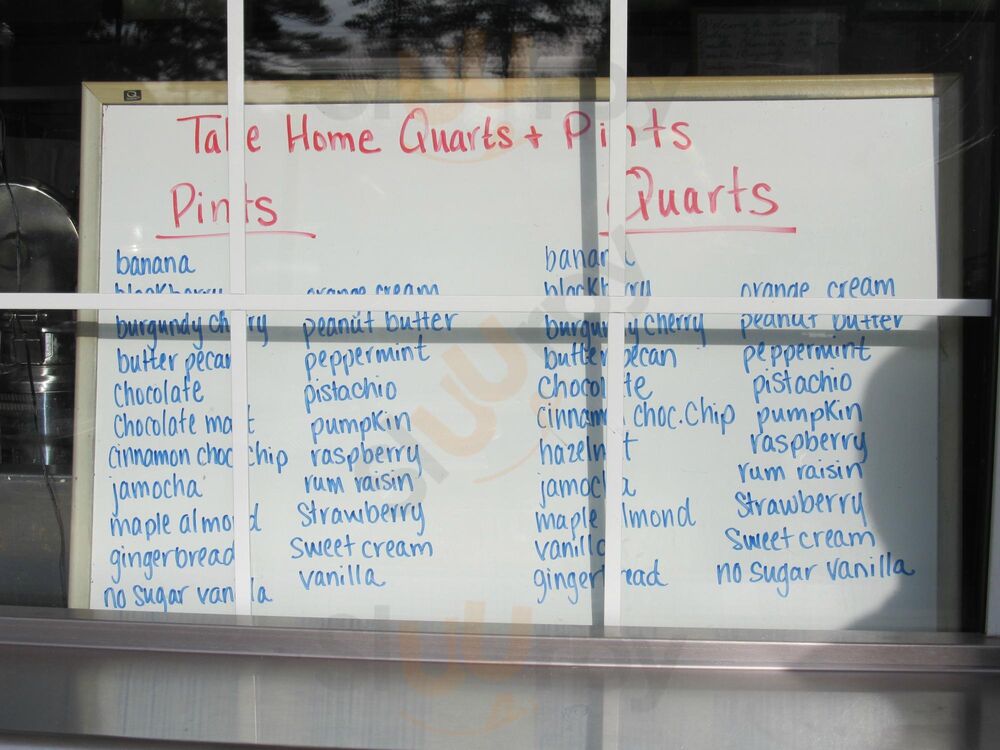 Take Home Quarts + Pints
Pints
banana
blackberry
burgundy cherry
butter pecan
chocolate
chocolate malt
cinnamon choc chip
jamocha
maple almond
gingerbread
no sugar vanilla
orange cream
peanut butter
peppermint
pistachio
pumpkin
raspberry
rum raisin
strawberry
sweet cream
vanilla
Quarts
banana
blackberry
burgundy cherry
butter pecan
chocolate
cinnamon choc. chip
hazelnut
jamocha
maple almond
vanilla
gingerbread
orange cream
peanut butter
peppermint
pistachio
pumpkin
raspberry
rum raisin
strawberry
sweet cream
no sugar vanilla
sluurpy
sluurpy
sluurpy